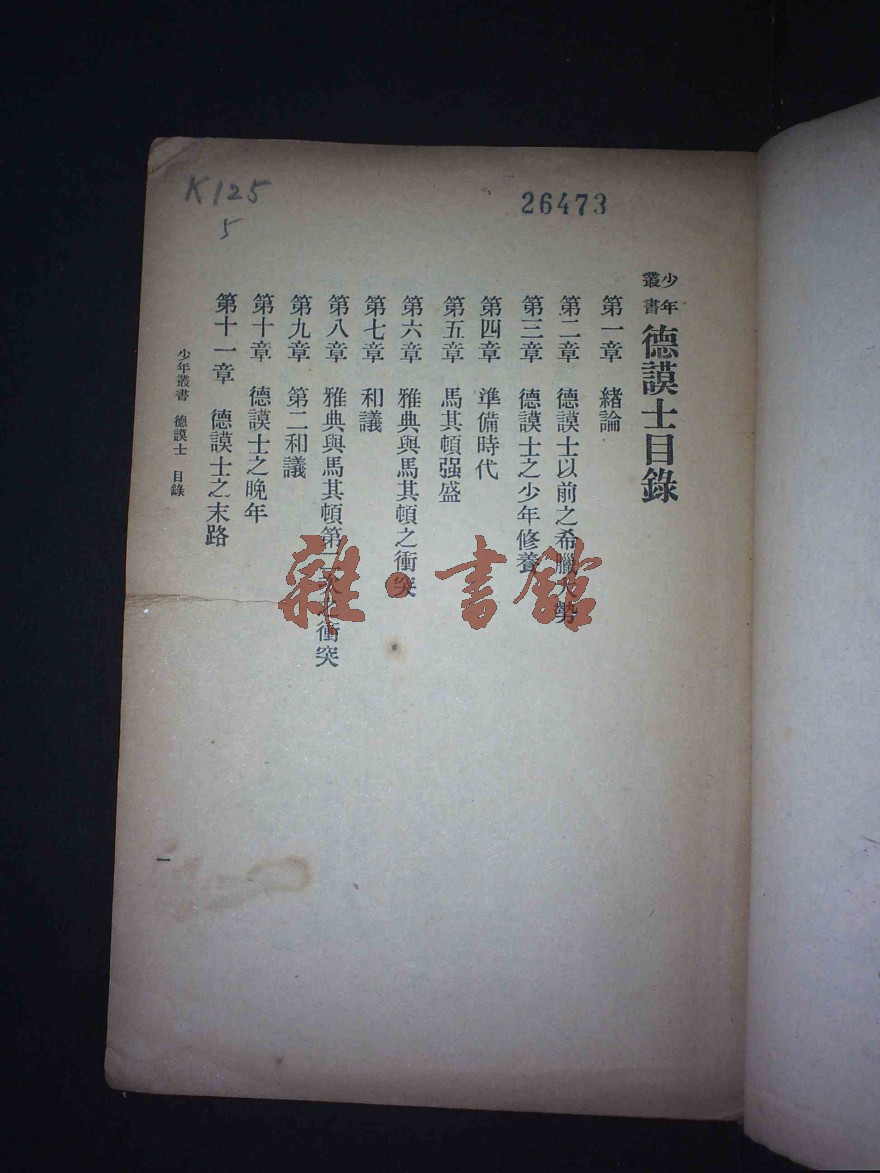 K125
5
26473
少年叢書 德謨士目錄
第一章 緒論
第二章 德謨士以前之希臘大勢
第三章 德謨士之少年修養
第四章 準備時代
第五章 馬其頓强盛
第六章 雅典與馬其頓之衝突
第七章 和議
第八章 雅典與馬其頓第二次之衝突
第九章 第二和議
第十章 德謨士之晚年
第十一章 德謨士之末路
少年叢書 德謨士 目錄
一
雜·書館